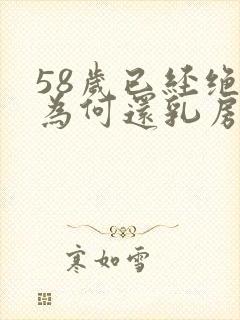 58歲已経绝
為何還乳房
寒如雪